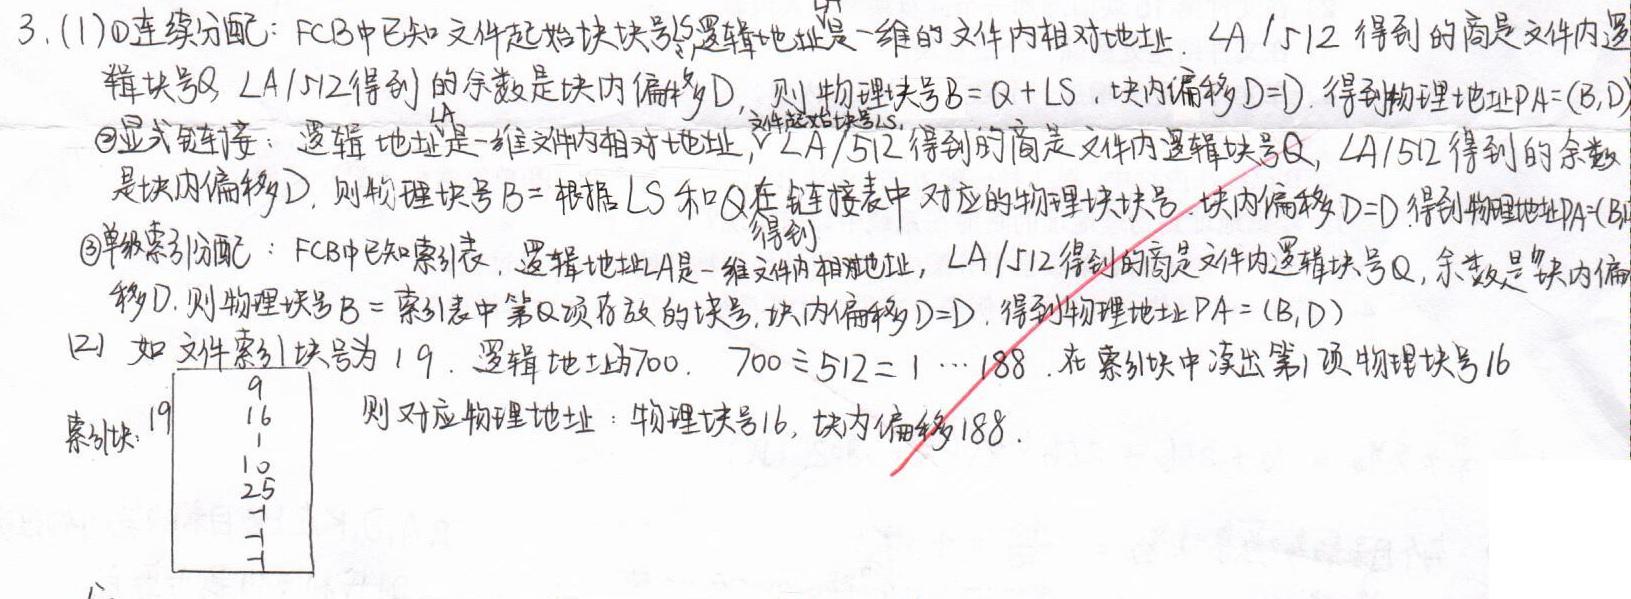 3.(1)①连续分配：FCB中已知文件起始块块号LS，逻辑地址LA是一维的文件内相对地址．LA/512 得到的商是文件内逻
辑块号Q，LA/512得到的余数是块内偏移D，则物理块号B=Q+LS．块内偏移D=D．得到物理地址PA=(B,D)
②显式链接：逻辑地址LA是一维文件内相对地址，文件起始块号LS，LA/512得到的商是文件内逻辑块号Q，LA/512得到的余数
是块内偏移D．则物理块号B=根据LS和Q在链接表中得到对应的物理块块号．块内偏移D=D．得到物理地址PA=(B,
③单级索引分配：FCB中已知索引表．逻辑地址LA是一维文件内相对地址，LA/512得到的商是文件内逻辑块号Q，余数是块内偏
移D．则物理块号B=索引表中第Q项存放的块号．块内偏移D=D．得到物理地址PA=(B,D)
(2) 如文件索引块号为19．逻辑地址为700．700÷512=1…188．在索引块中读出第1项物理块号16
则对应物理地址：物理块号16，块内偏移188．
索引块：19
9
16
1
10
25
-1
-1
-1